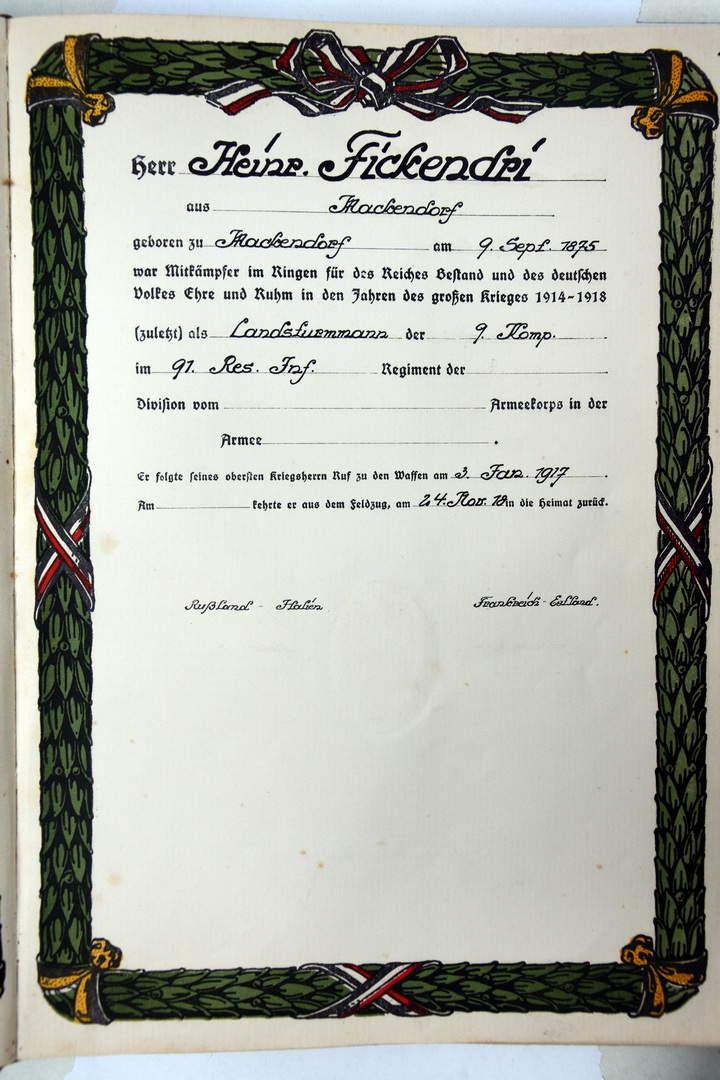 Herr Heinr. Fickendri
aus Mackendorf
geboren zu Mackendorf am 9. Sept. 1875
war Mitkämpfer im Ringen für des Reiches Bestand und des deutschen
Volkes Ehre und Ruhm in den Jahren des großen Krieges 1914-1918
(zuletzt) als Landsturmmann der 9. Komp.
im 91. Res. Inf. Regiment der
Division vom Armeekorps in der
Armee .
Er folgte seines obersten Kriegsherrn Ruf zu den Waffen am 3. Jan. 1917 .
Am kehrte er aus dem Feldzug, am 24. Nov. 18 in die Heimat zurück.
Rußland - Italien Frankreich - Estland.